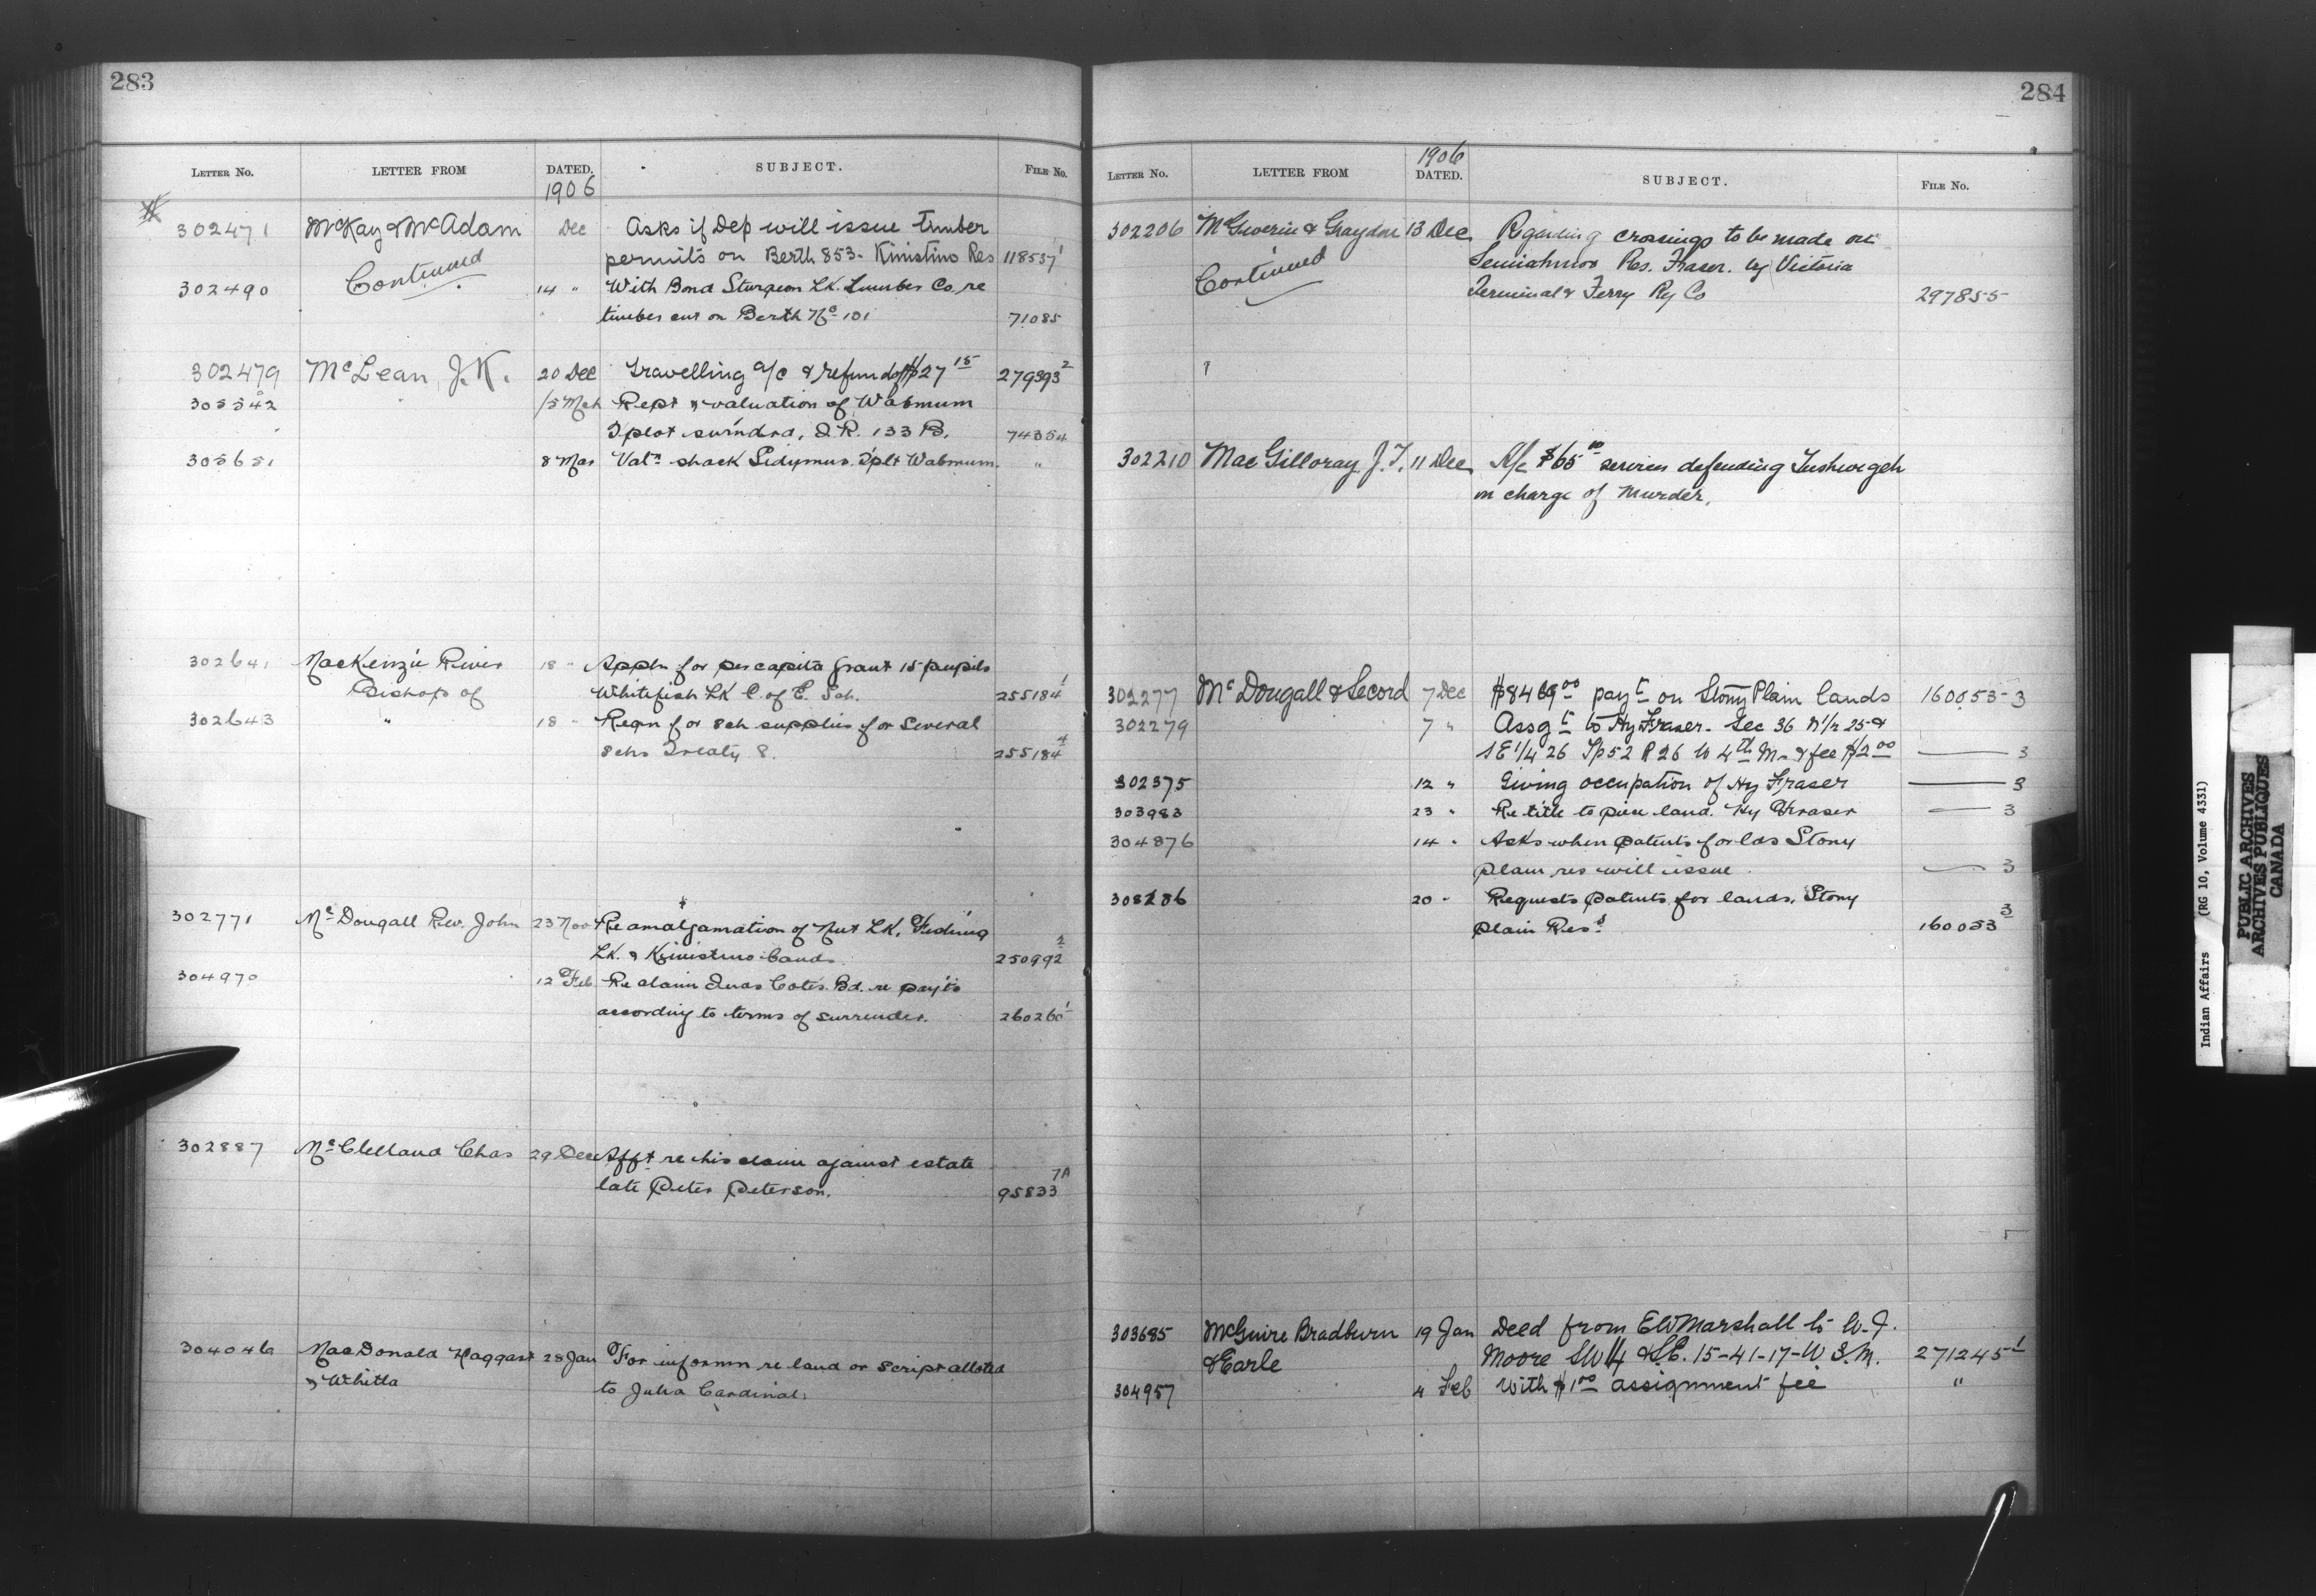 283
LETTER No. LETTER FROM DATED. SUBJECT. FILE No.
1906
302471 McKay & McAdam Dec Asks if Dep will issue timber
permits on Berth 853- Kinistino Res 118537 1
302490 Continued 14 " With Bond Sturgeon Lk. Lumber Co. re
timber cut on Berth No 101 71085
302479 McLean, J. K. 20 Dec Travelling a/c & refund of $27 15 279393 2
305542 15 Mch Rept & valuation of Wabmum
T plot surndrd, I.R. 133 B. 74354
305651 8 Mar Valn shack Tsplt Wabmum "
302641 MacKenzie River 18 " Appln for per capita grant 15 pupils
Bishop of Whitefish Lk C. of E. Sch. 255184 1
302643 " 18 " Reqn for sch supplies for several
schs Treaty 8. 255184 4
302771 McDougall Rev. John 23 Nov Re amalgamation of Nut Lk, Fishing
Lk. & Kinistino bands 250992 2
304970 12 Feb Re claim Inds Cotes Bd. re payts
according to terms of surrender. 260260 1
302887 McClelland Chas 29 Dec Afft re his claim against estate
late Peter Peterson. 95833 7A
304046 MacDonald Haggart 28 Jan For informn re land or script allotted
& Whitla to Julia Cardinal.
284
1906
LETTER No. LETTER FROM DATED. SUBJECT. FILE No.
302206 McGiverin & Graydon 13 Dec Regarding crossings to be made on
Continued Semiahmoo Res. Fraser. by Victoria
Terminal & Ferry Ry Co 297855
302210 MacGilloray J. T. 11 Dec A/c $65 services defending
on charge of murder.
302277 McDougall & Secord 7 Dec $8469 00 payt on Stony Plain lands 160053-3
302279 7 " Assgt to Hy Fraser. Sec 36 N 1/2 25 &
SE 1/4 26 Tp 52 R 26 W 4th M. & fee $2 00 — 3
302375 12 " Giving occupation of Hy Fraser — 3
303983 23 " Re title to piece land. Hy Fraser — 3
304876 14 " Asks when patents for lds Stony
plain res will issue — 3
308286 20 " Requests patents for lands, Stony
Plain Res 160053 3
303685 McGuire Bradburn 19 Jan Deed from EW Marshall to W. J.
& Earle Moore SW 1/4 & S.E. 15-41-17-W 2. M. 271245 1
304957 4 Feb With $1 00 assignment fee "
Indian Affairs (RG 10, Volume 4331)
PUBLIC ARCHIVES
ARCHIVES PUBLIQUES
CANADA